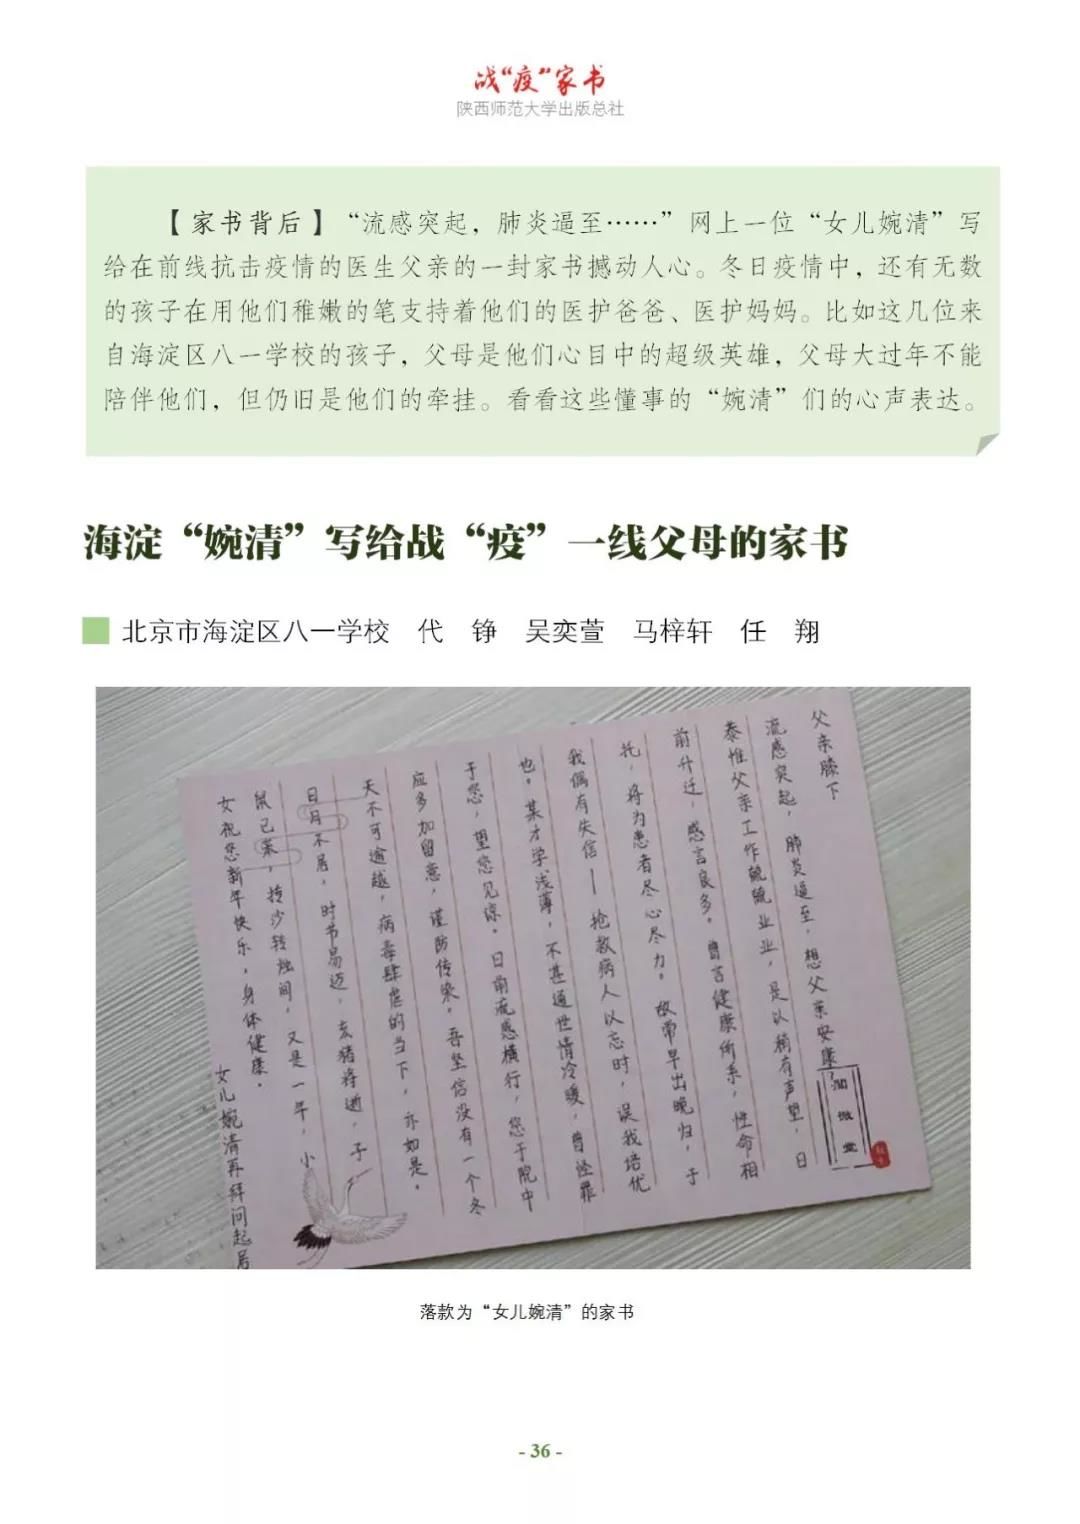 战“疫”家书
陕西师范大学出版总社
【家书背后】“流感突起，肺炎逼至……”网上一位“女儿婉清”写
给在前线抗击疫情的医生父亲的一封家书撼动人心。冬日疫情中，还有无数
的孩子在用他们稚嫩的笔支持着他们的医护爸爸、医护妈妈。比如这几位来
自海淀区八一学校的孩子，父母是他们心目中的超级英雄，父母大过年不能
陪伴他们，但仍旧是他们的牵挂。看看这些懂事的“婉清”们的心声表达。
海淀“婉清”写给战“疫”一线父母的家书
北京市海淀区八一学校 代 铮 吴奕萱 马梓轩 任 翔
父亲膝下
流感突起，肺炎逼至，想父亲安康
泰惟父亲工作兢兢业业，是以稍有声望，日
前升迁，感言良多。曾言健康所系，性命相
托，将为患者尽心尽力。故常早出晚归，于
我偶有失信——抢救病人以忘时，误我培优
也。某才学浅薄，不甚通世情冷暖，曾怪罪
于您，望您见谅。日前流感横行，您于院中
应多加留意，谨防传染。吾坚信没有一个冬
天不可逾越，病毒肆虐的当下，亦如是。
日月不居，时节易迈，玄猪将逝，子
鼠已来，抟沙转烛间，又是一年，小
女祝您新年快乐，身体健康。
女儿婉清再拜问起居
微
落款为“女儿婉清”的家书
- 36 -